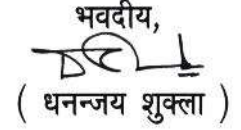 भवदीय,
( धनन्जय शुक्ला )